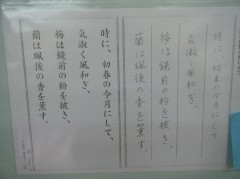 時に、初春の令月にして
気淑く風和ぎ、
梅は鏡前の粉を披き、
蘭は珮後の香を薫す。
時に、初春の令月にして、
気淑く風和ぎ、
梅は鏡前の粉を披き、
蘭は珮後の香を薫す。